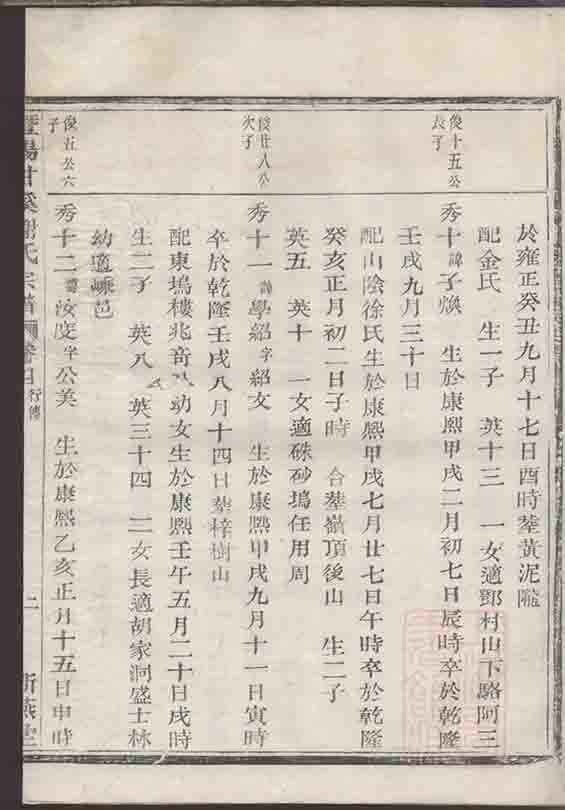 於雍正癸丑九月十七日酉時塟黃泥隴
配金氏　生一子　英十三　一女適鄧村山下駱阿三
俊十五公長子
秀十諱子煥　生於康熙甲戌二月初七日辰時卒於乾隆
壬戌九月三十日
配山陰徐氏生於康熙甲戌七月廿七日午時卒於乾隆
癸亥正月初二日子時　合塟嶺頂後山　生二子
英五　英十　一女適硃砂塢任用周
俊廿八公次子
秀十一諱學紹字紹文　生於康熙甲戌九月十一日寅時
卒於乾隆壬戌八月十四日塟梓樹山
配東塢樓兆音公幼女生於康熙壬午五月二十日戌時
生二子　英八　英三十四　二女長適胡家洞盛士林
幼適嵊邑
俊五公六子
秀十二諱汝度字公美　生於康熙乙亥正月十五日申時
暨陽甘溪謝氏宗譜　卷四　行傳　二